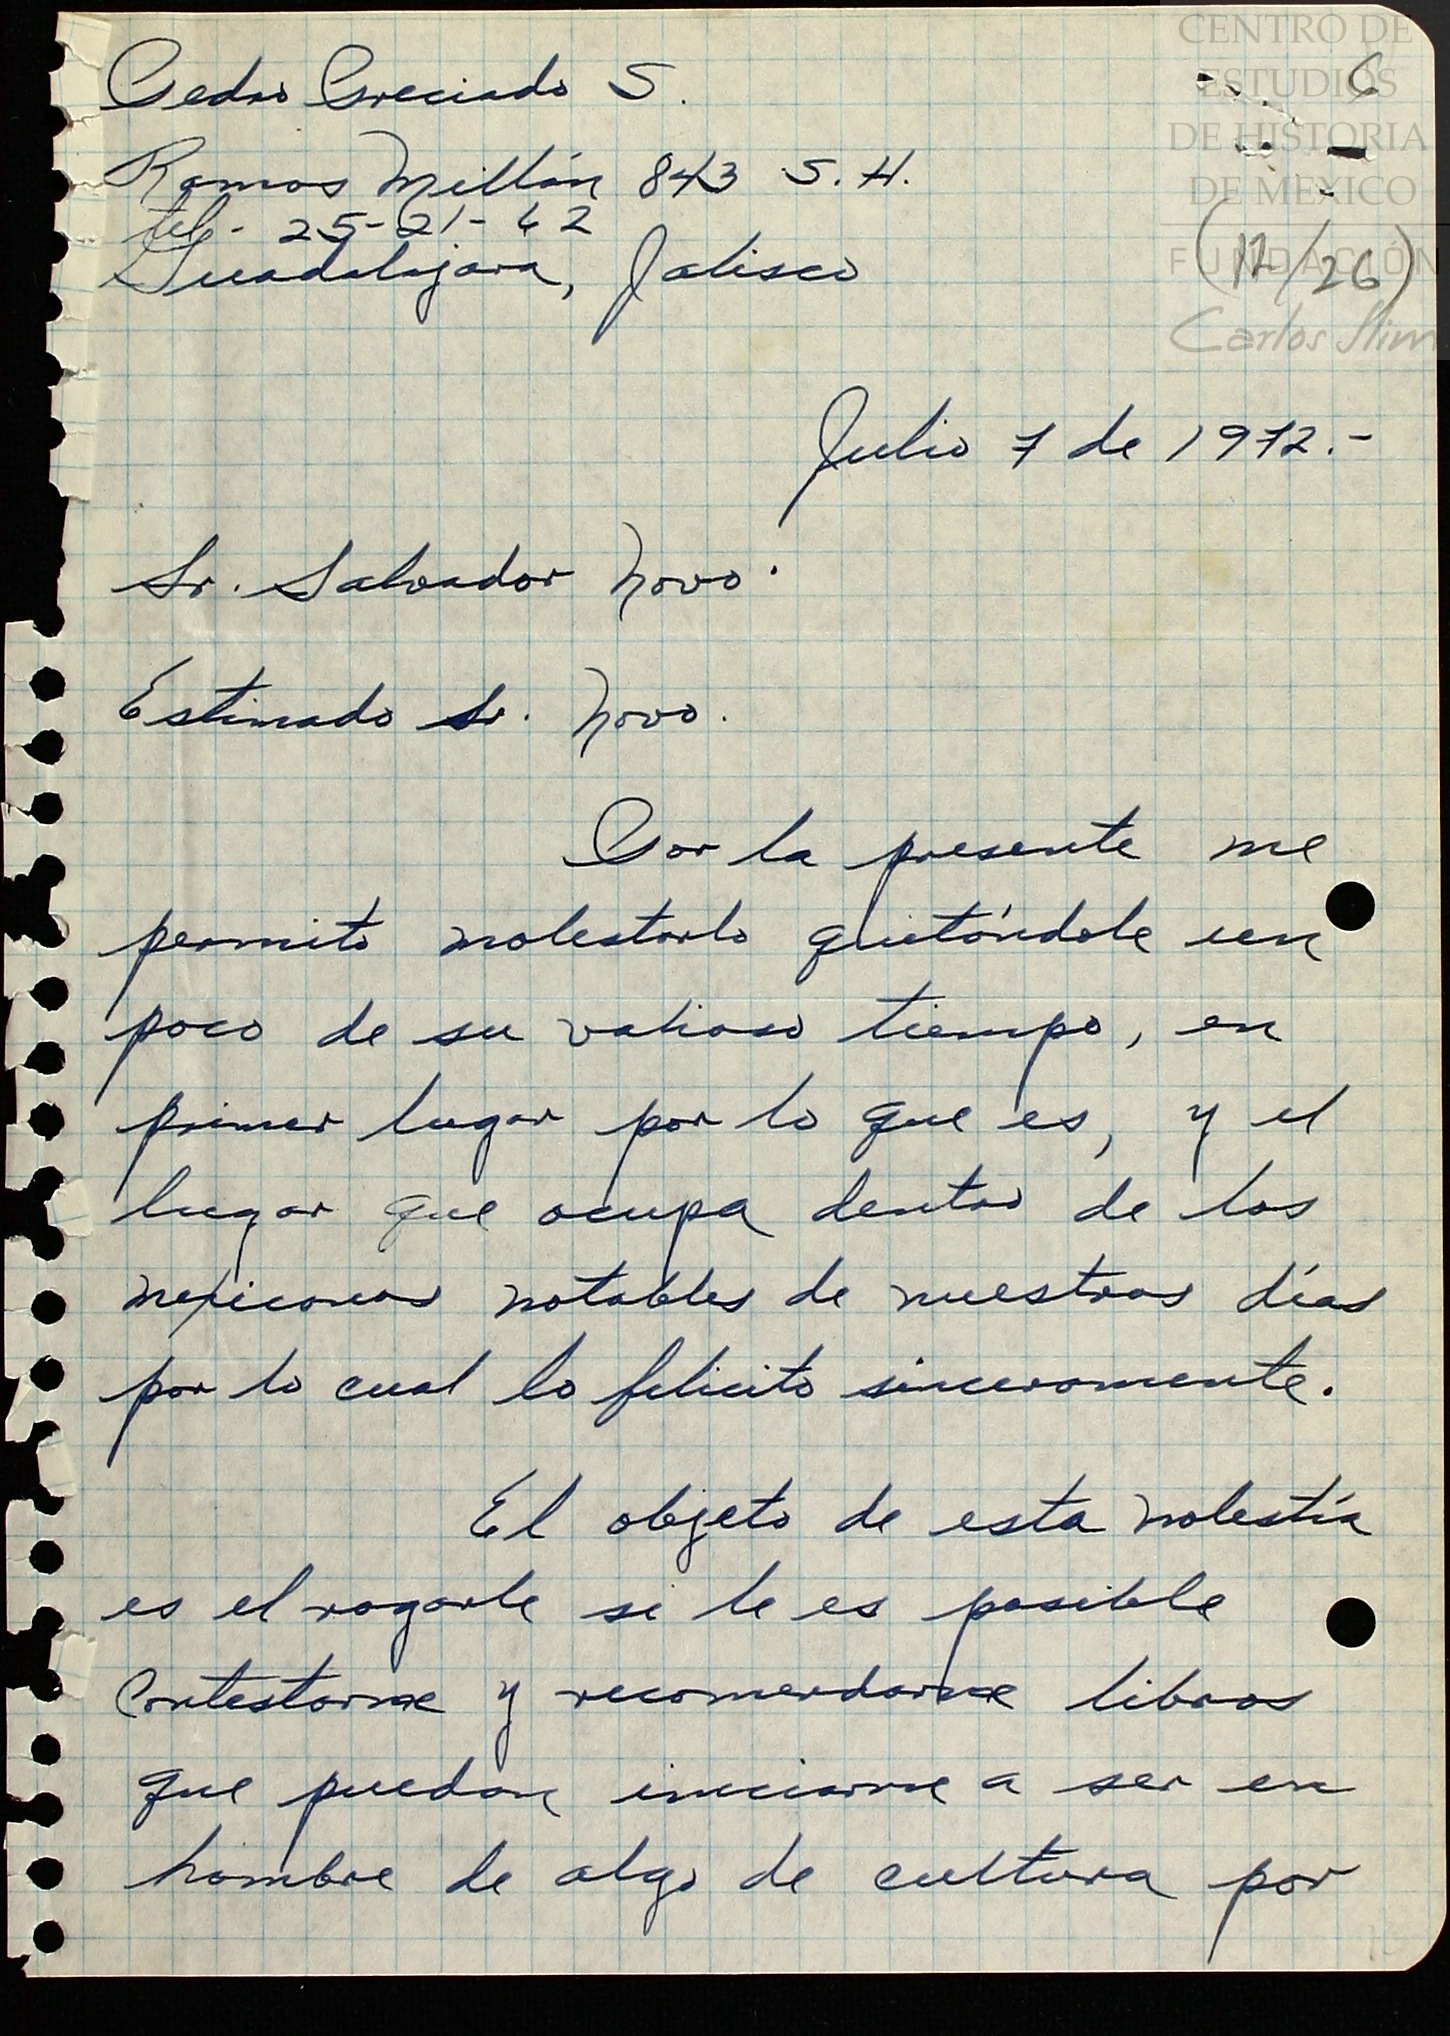 Pedro Preciado S.
Ramos Millán 843 S.H.
tel- 25-21-62
Guadalajara, Jalisco
CENTRO DE
ESTUDIOS
DE HISTORIA
DE MÉXICO
FUNDACIÓN
Carlos Slim
6
(12/26)
Julio 7 de 1972.-
Sr. Salvador Novo.
Estimado Sr. Novo.
Por la presente me
permito molestarlo quitándole un
poco de su valioso tiempo, en
primer lugar por lo que es, y el
lugar que ocupa dentro de los
mexicanos notables de nuestros días
por lo cual lo felicito sinceramente.
El objeto de esta molestía
es el rogarle si le es posible
contestarme y recomendarme libros
que puedan iniciarme a ser en
hombre de algo de cultura por